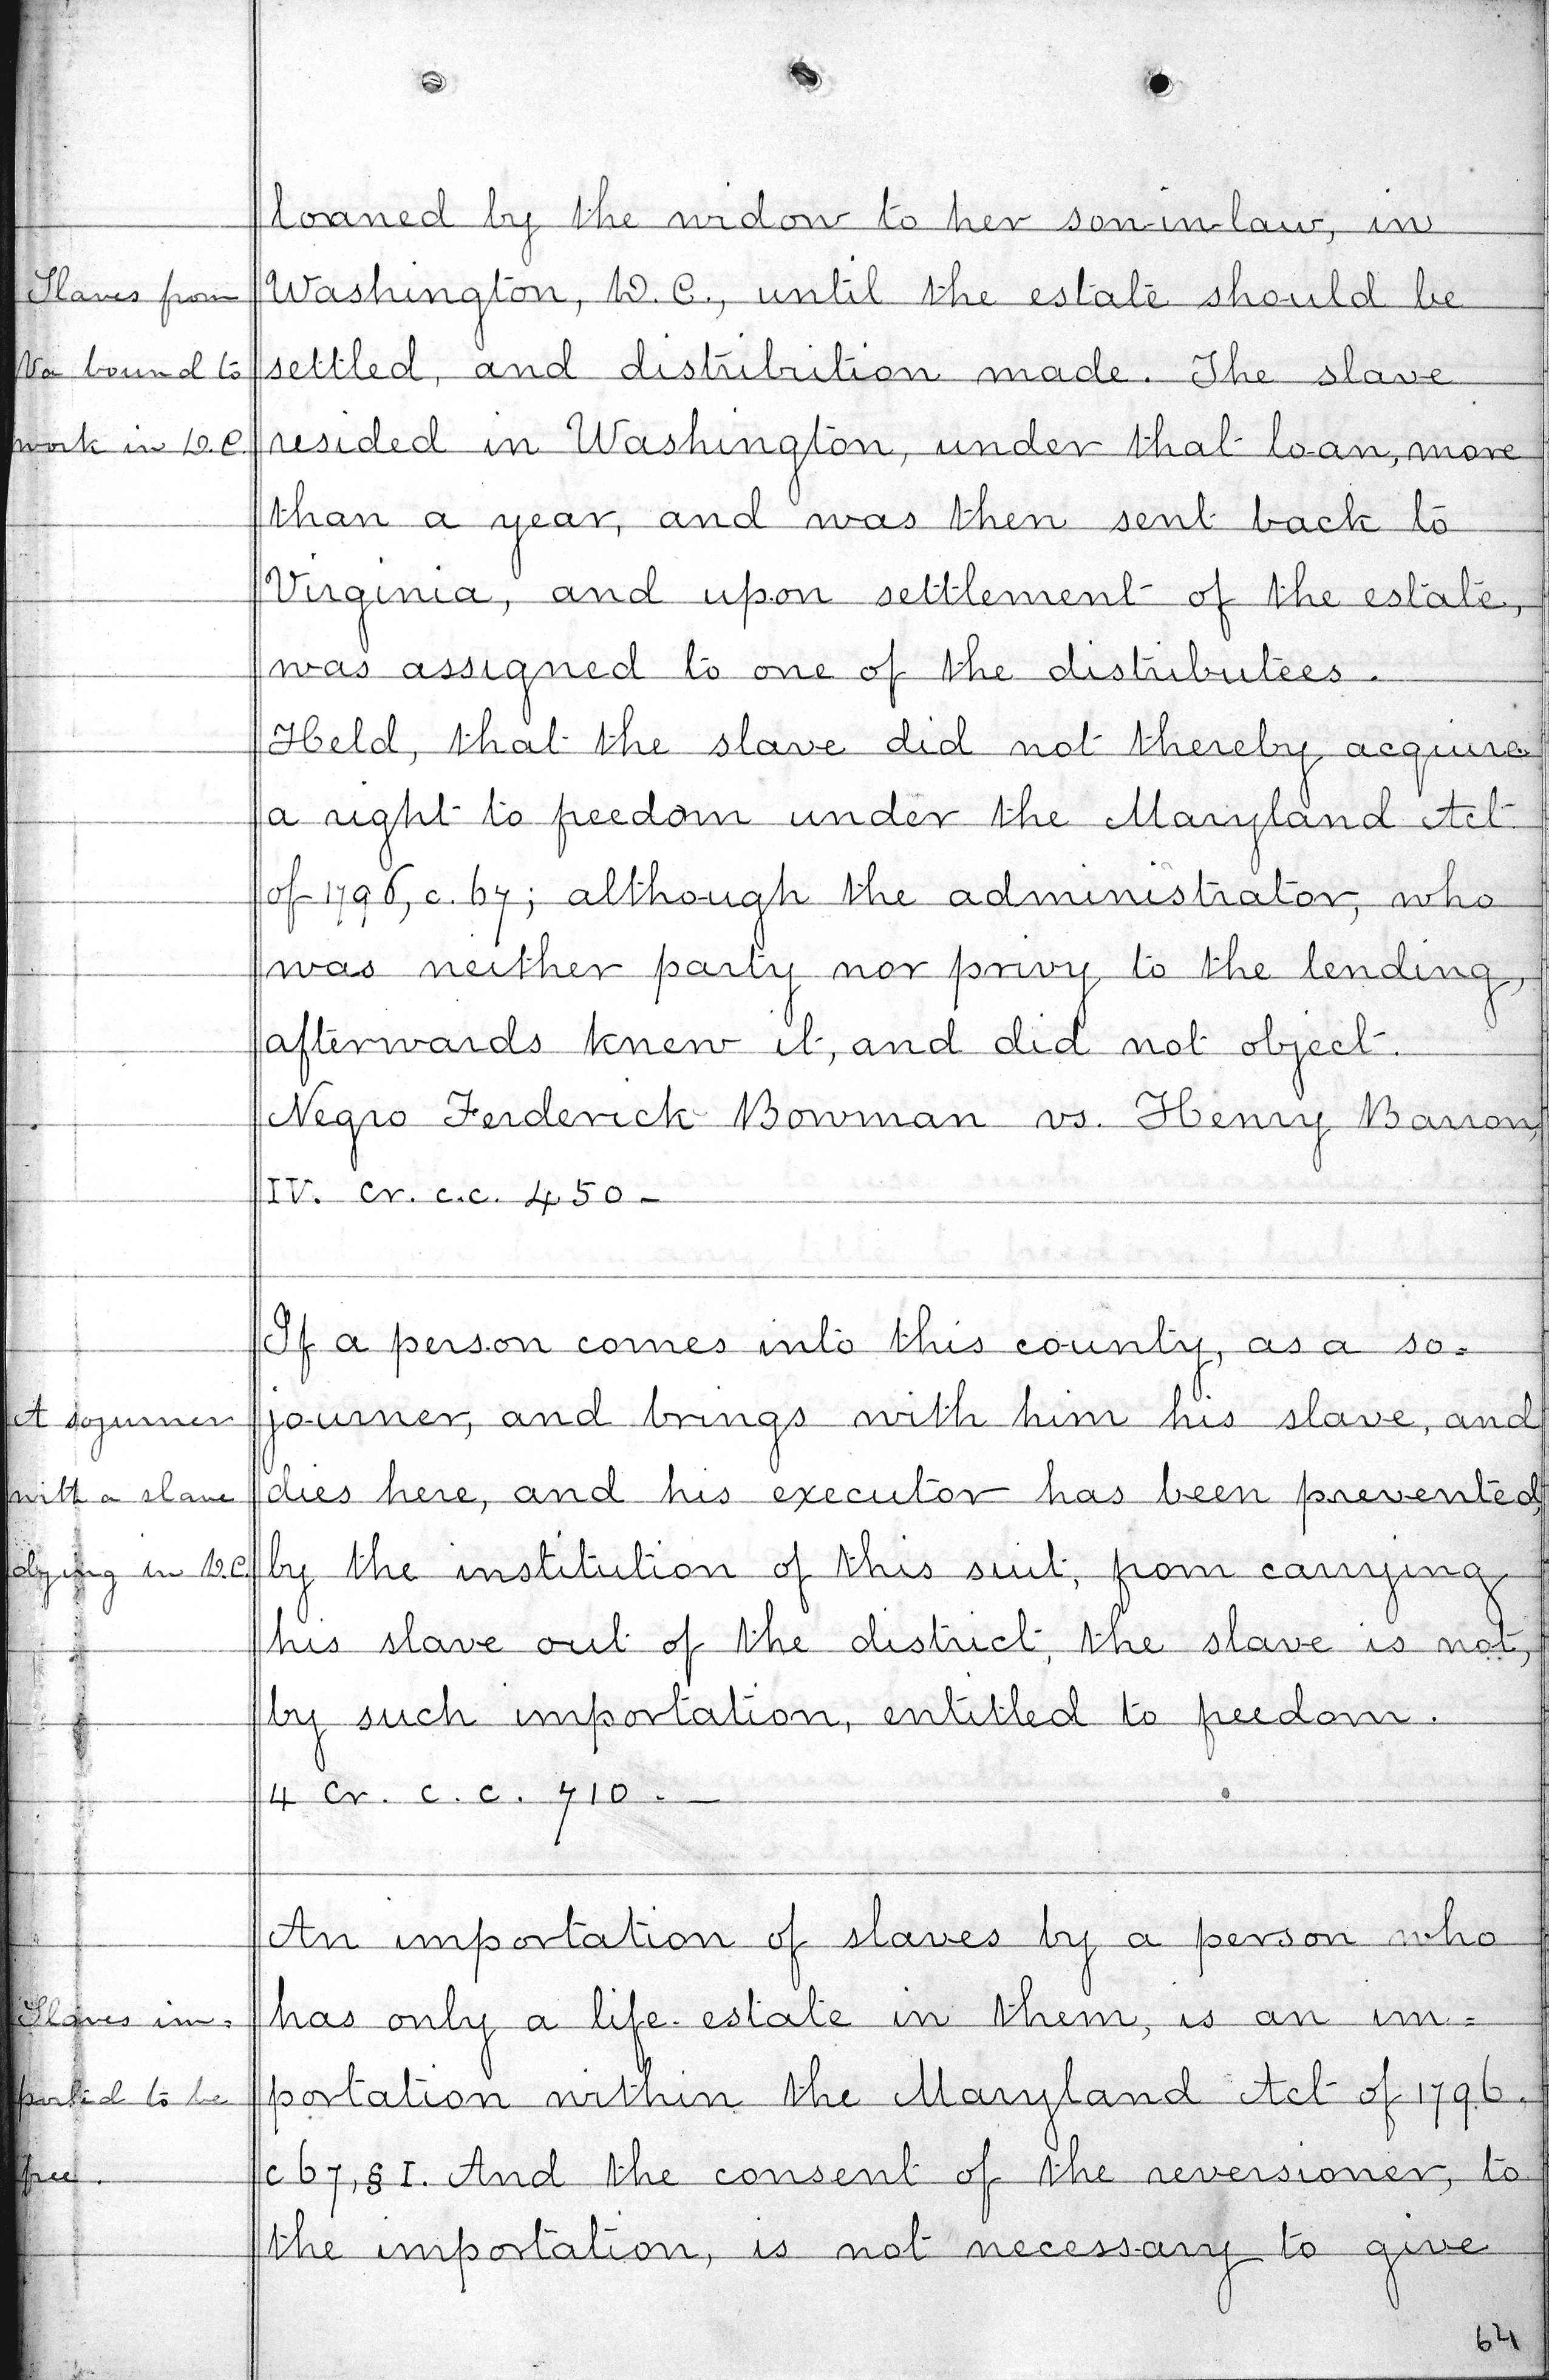 loaned by the widow to her son-in-law, in
Slaves from
Washington, D.C., until the estate should be
Va bound to
settled, and distribution made. The slave
work in D.C.
resided in Washington, under that loan, more
than a year, and was then sent back to
Virginia, and upon settlement of the estate,
was assigned to one of the distributees.
Held, that the slave did not thereby acquire
a right to freedom under the Maryland Act
of 1796, c. 67; although the administrator, who
was neither party nor privy to the lending,
afterwards knew it, and did not object.
Negro Ferderick Bowman vs. Henry Barron,
IV. Cr. c.c. 450-
If a person comes into this county, as a so=
A sojurner
journer, and brings with him his slave, and
with a slave
dies here, and his executor has been prevented,
dying in D.C.
by the institution of this suit, from carrying
his slave out of the district, the slave is not,
by such importation, entitled to freedom.
4 Cr. c.c. 710.-
An importation of slaves by a person who
Slaves im=
has only a life-estate in them, is an im=
ported to be
portation within the Maryland Act of 1796.
free.
c 67, § I. And the consent of the reversioner, to
the importation, is not necessary to give
64